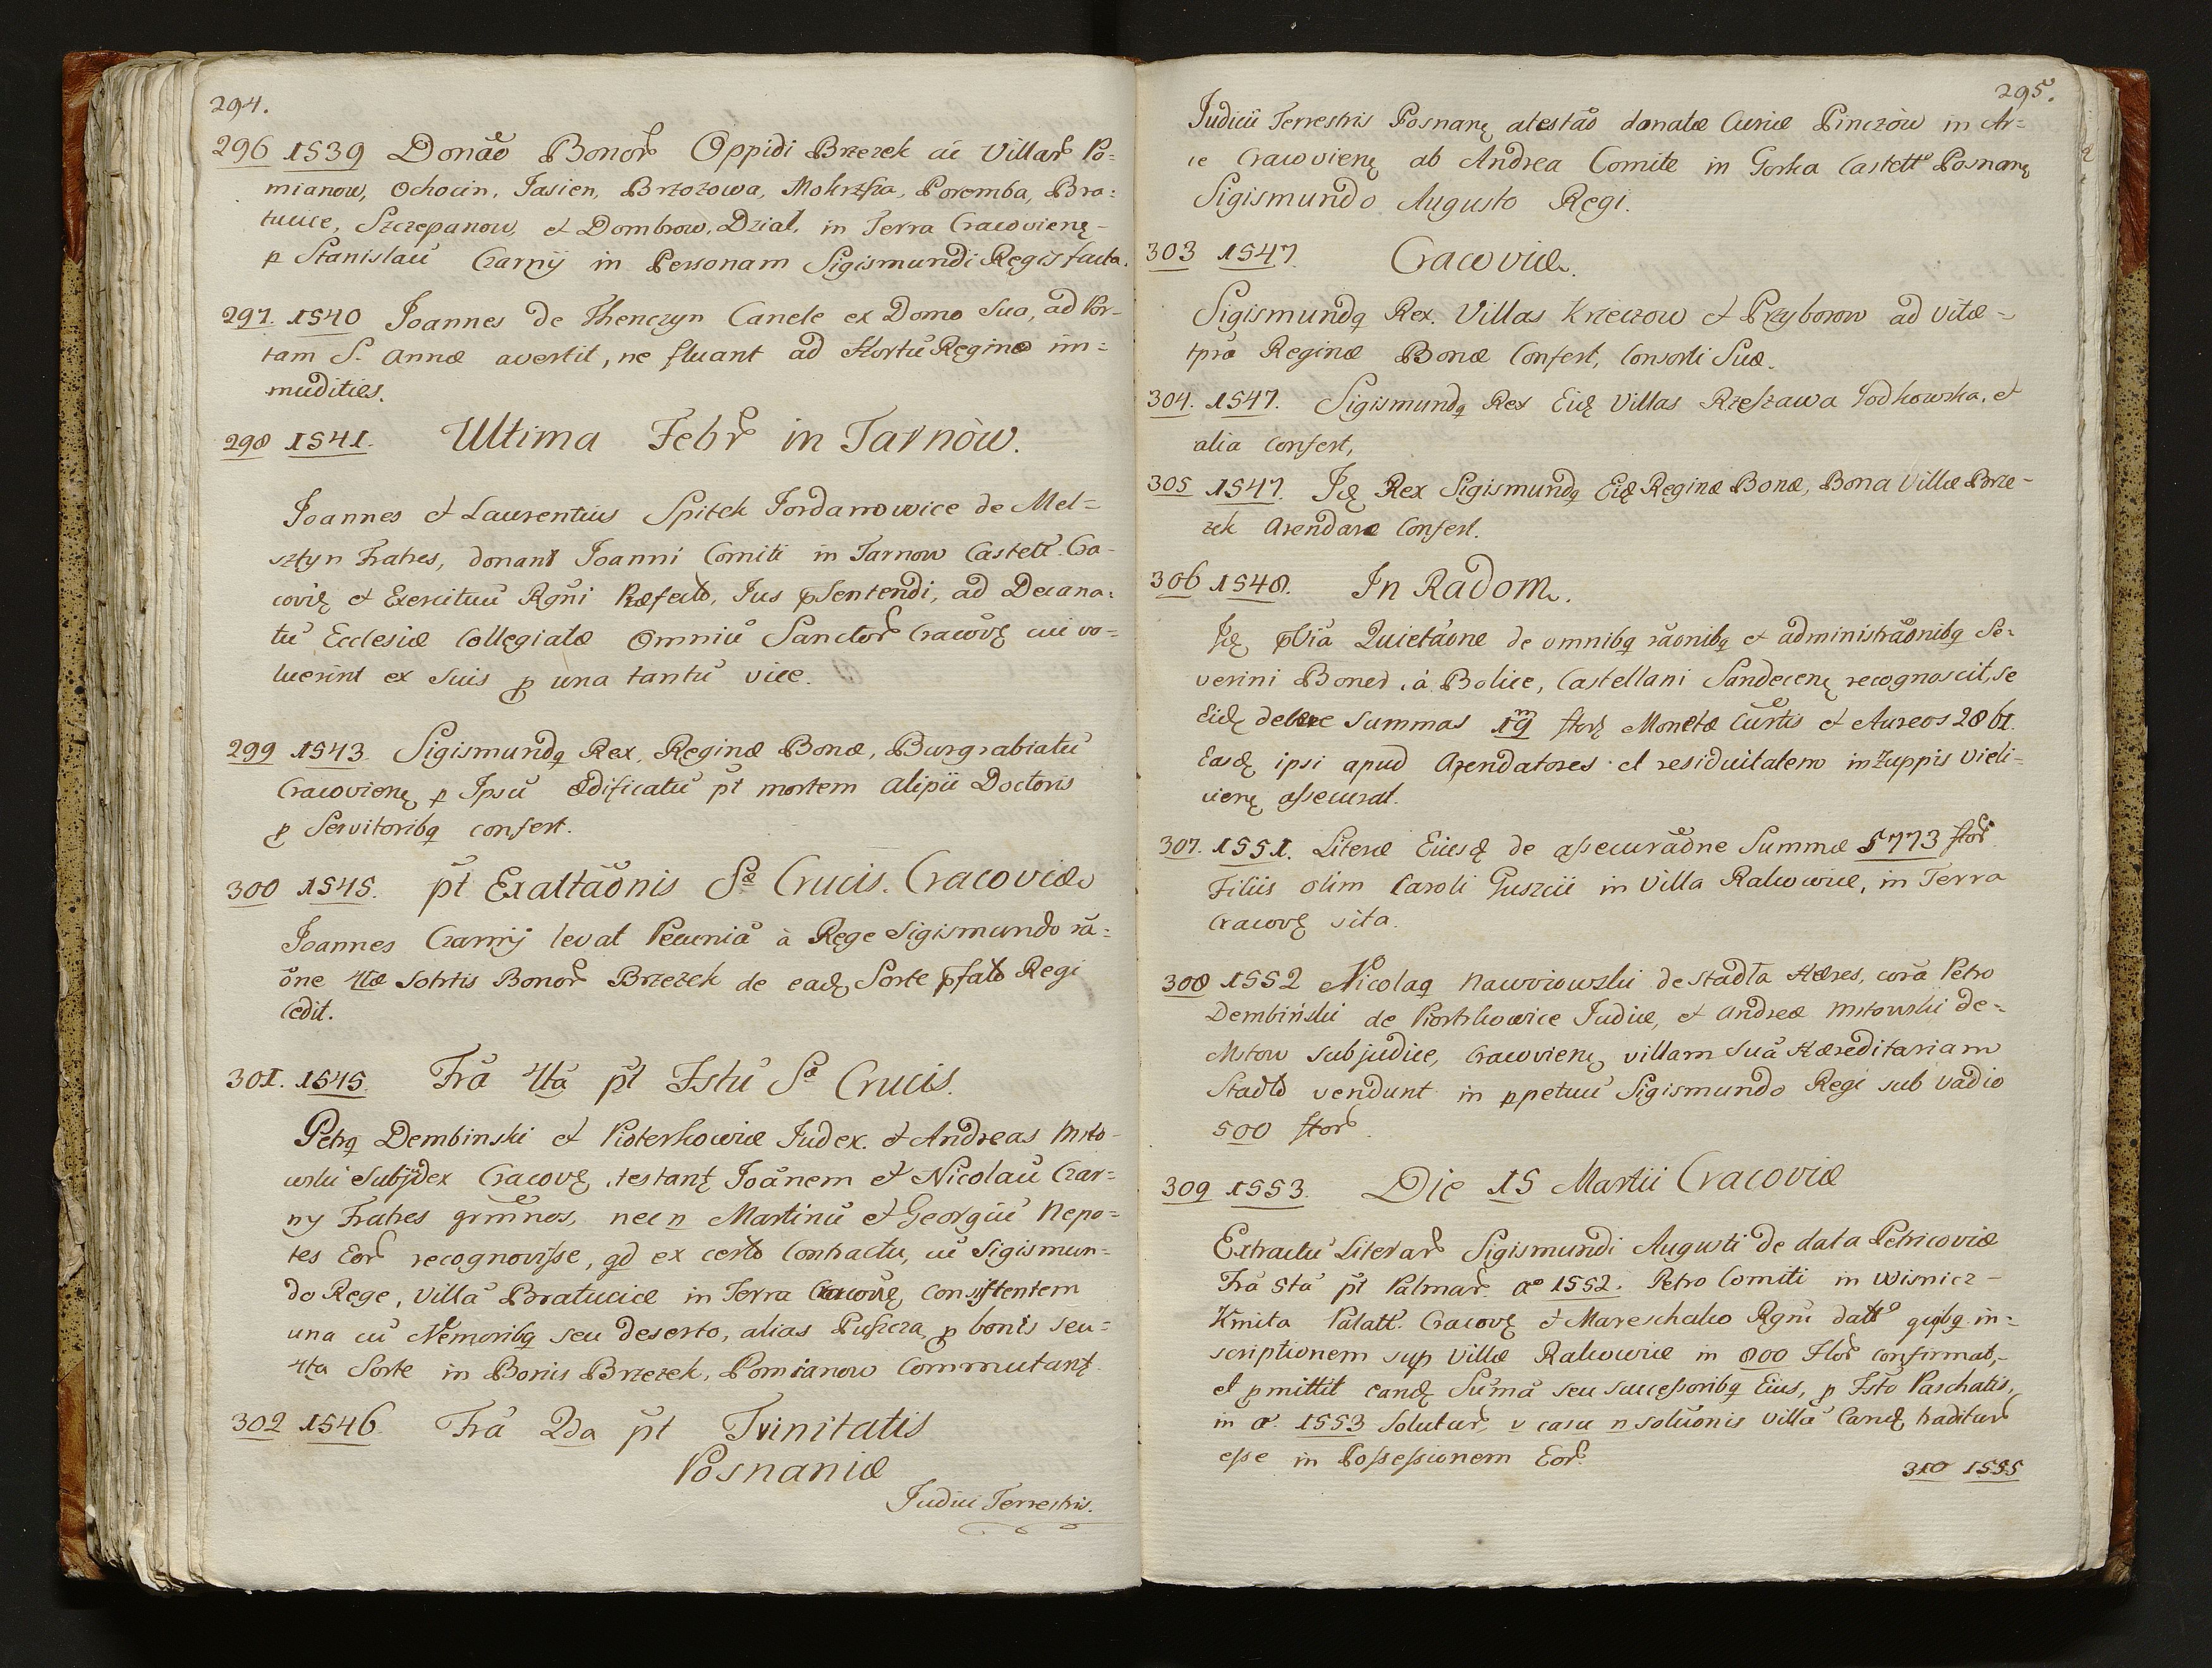 294.
296 1539 Donaõ Bonor Oppidi Brzezek cũ Villar Po=
mianow, Ochocin, Jasien, Brzozowa, Mokrzka, Poremba, Bra=
tucice, Szczepanow, et Dombrow, Dział, in Terra Cracovienę-
p Stanislaũ Czarnÿ in Personam Sigismundi Regis facta.
297. 1540 Joannes de Thenczyn Canele ex Domo Sua, ad Por-
tam S. Annæ avertit, ne fluant ad Hortũ Reginæ im=
mudities.
298 1541. Ultima Febr in Tarnòw.
Joannes et Laurentius Spitek Jordanowice de Mel=
sztyn Fratres, donant Joanni Comiti in Tarnow Castell. Cra-
covię et Exercituũ Rgñi Præfecto, Jus pSentendi, ad Decana=
tũ Ecclesiæ Collegiatæ Omniũ Sanctor Cracovę cui vo=
luerint ex suis p una tantũ vice.
299 1543. Sigismundq Rex, Reginæ Bonæ, Burgrabiatũ
Cracovienę p Ipsũ ædificatũ pt mortem Alipii Doctoris
p Servitoribq confert.
300 1545. pt Exaltaõnis Sæ Crucis. Cracoviæ
Joannes Czarnÿ levat Pecuniã à Rege Sigismundo rã=
õne 4tæ Sortis Bonor Brzezek de eadę Sorte pfato Regi
cedit.
301. 1545. Frã 4tã pt Fstũ Sæ Crucis.
Petrq Dembinski et Pioterkowice Judex. et Andreas Msto-
wski Subjdex Cracovę, testantę Joãnem et Nicolaũ Czar=
ny Fratres grmños, nec n Martinũ et Georgiũ Nepo=
tes Eor recognovisse, qd ex certo Contractu, cũ Sigismun=
do Rege, Villã Bratucice in Terra Cracovię consistentem
una cũ Nemoribq seu deserto, alias Puszcza p bonis seu=
4ta Sorte in Bonis Brzezek, Pomianow Commutantę.
302 1546. Frã 2da pt Trinitatis
Posnaniæ
Judici Terrestris.
295.
Judicii Terrestris Posnanę atestaõ donatæ Curiæ Pinczòw in Ar=
ce Cracovienę ab Andrea Comite in Gorka Castell Posnanę
Sigismundo Augusto Regi.
303 1547. Cracoviæ.
Sigismundq Rex. Villas Krzeczow et Przyborow ad vitæ-
tpra Reginæ Bonæ Confert, Consorti Suæ.
304. 1547. Sigismundq Rex Eidę Villas Rzeszawa Jodkowska, et
alia confert,
305 1547. Idę Rex Sigismundq Eidę Reginæ Bonæ, Bona Villæ Brze-
zek Arendare Confert.
306 1548. In Radom.
Idę pviã Quietãone de omnibq rãonibq et administrãonibq Se=
verini Boner, à Balice, Castellani Sandecenę recognoscit, se
Eidę debere Summas 19 m florę Monetæ Curtis et Aureos 2861.
Easdę ipsi apud Arendatores et residuitatem in Zuppis Vieli=
cienę assecurat.
307. 1551. Literæ Eiusdę de assecurãone Summæ 5773 flor.
Filiis olim Caroli Guszcii in Villa Rakowice, in Terra
Cracovę sita.
308 1552 Nicolaq Nawoiowski de Stadła Hæres, corã Petro
Dembiński de Piortrkowice Judice, et Andreæ Mstowski de=
Mstow subjudice, Cracovienę villam suã Hæreditariam
Stadło vendunt in ppetuũ Sigismundo Regi sub vadio
500 flor.
309 1553. Die 15 Martii Cracoviæ
Extractũ Literar Sigismundi Augusti de data Petricoviæ
Frã 5tã pt Palmar. Ao 1552. Petro Comiti in Wisnicz-
Kmita Palatt. Cracovę et Mareschalco Rgni datt quibq in=
scriptionem sup Villæ Rakowice in 800 Flor confirmat,-
et pmittit eandę Sumã seu successoribq Eius, p Fsto Paschatis,
in Ao. 1553 Solutur, v casu n soluonis villã Eandę traditur
esse in Possessionem Eor.
310 1555